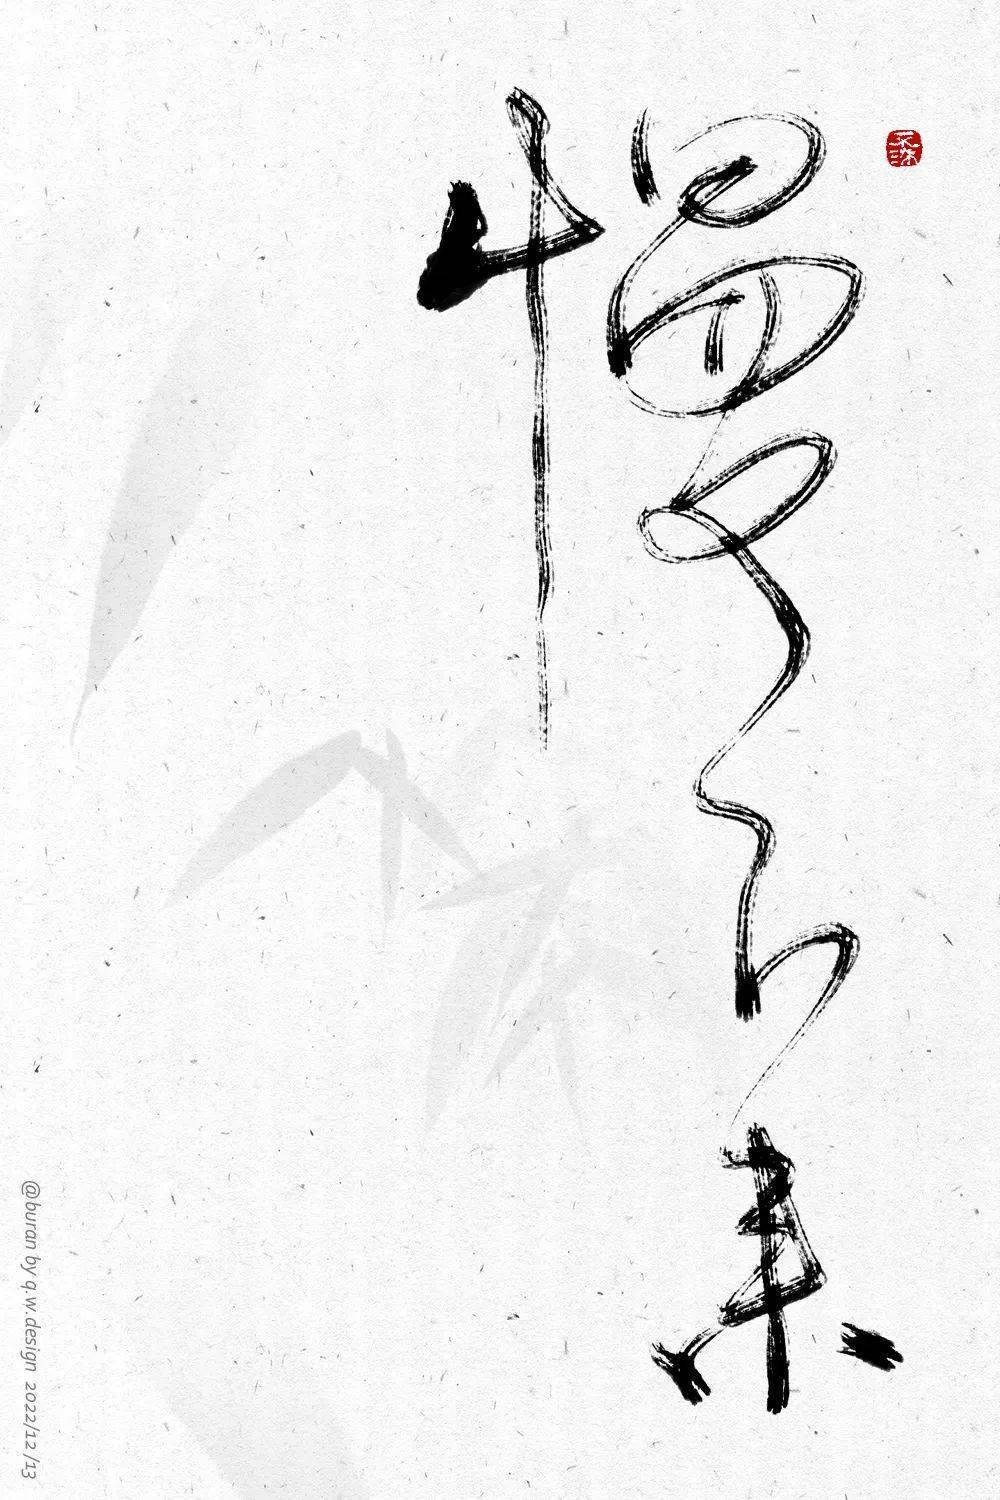 慢下来
不染
@buran by q.w.design 2022/12/13